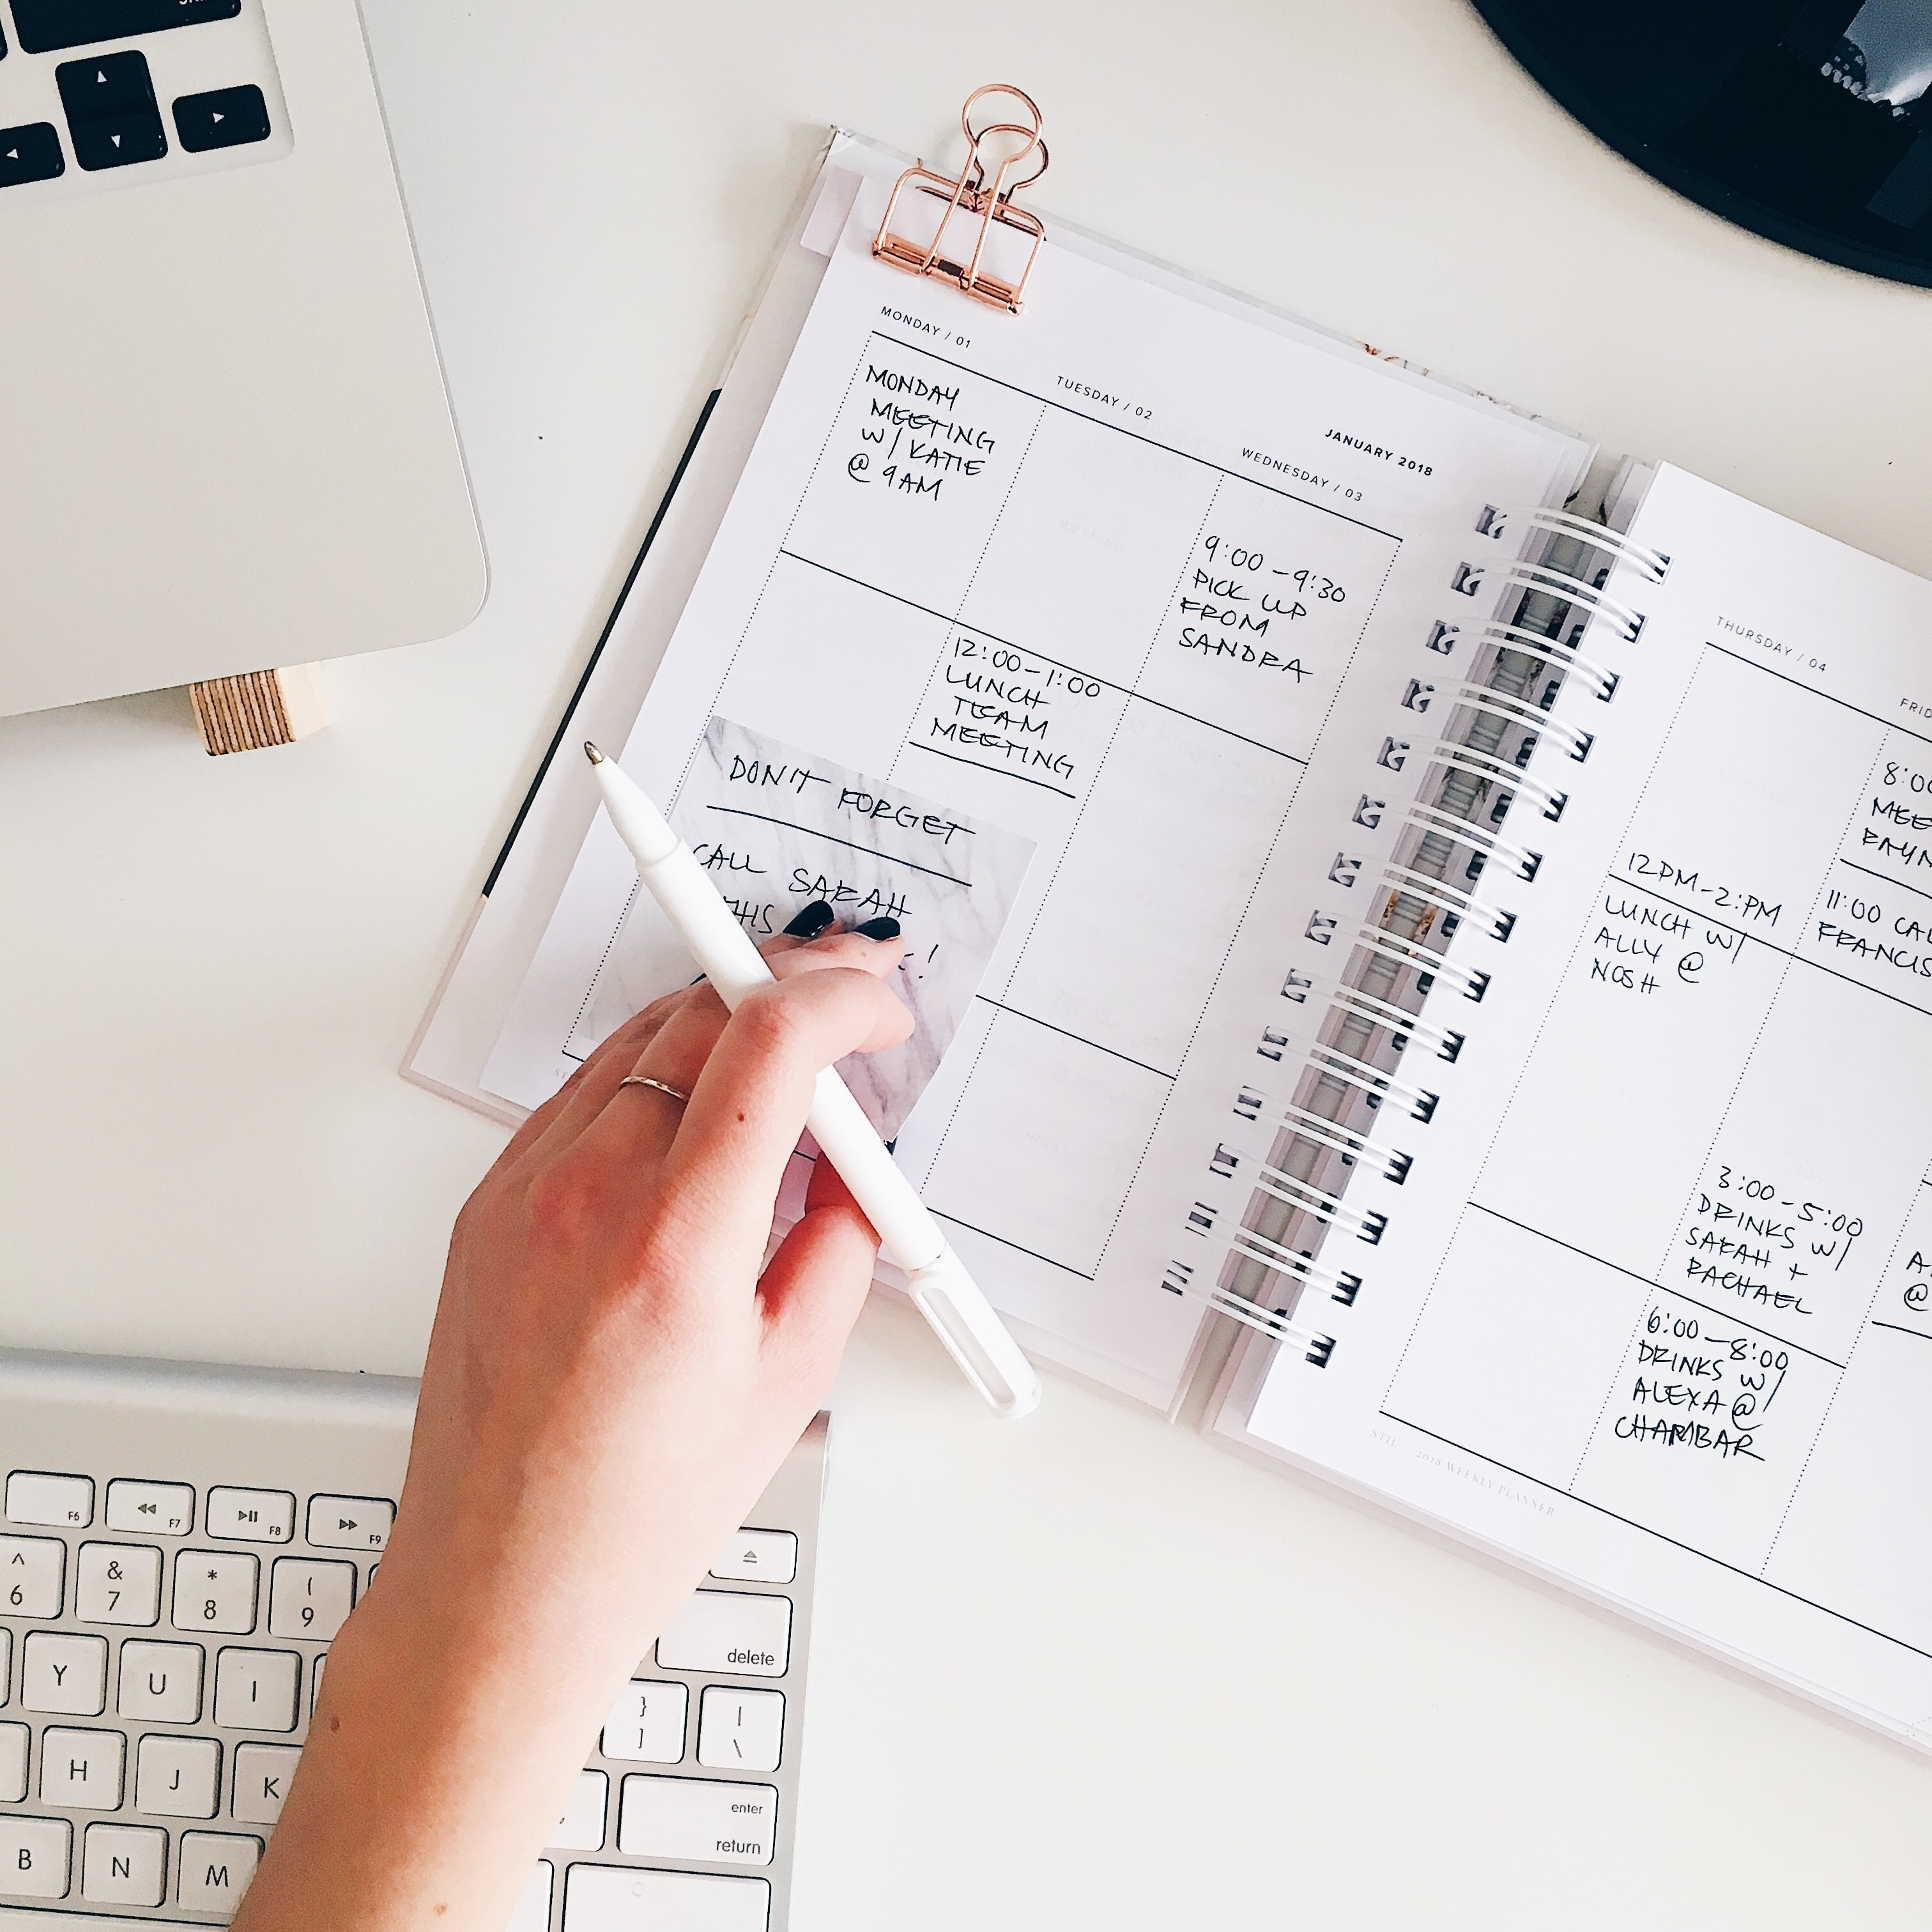 MONDAY / 01
MONDAY
MEETING
W/ KATIE
@ 9AM
TUESDAY / 02
12:00-1:00
LUNCH
TEAM
MEETING
JANUARY 2018
WEDNESDAY / 03
9:00-9:30
PICK UP
FROM
SANDRA
DON'T FORGET
CALL SARAH
THIS
!
THURSDAY / 04
12PM-2:PM
LUNCH W/
ALLY @
NOSH
FRID
8:00
MEE
11:00 CAL
FRANCIS
3:00-5:00
DRINKS W/
SARAH +
RACHAEL
6:00-8:00
DRINKS W/
ALEXA @
CHAMBAR
@
2018 WEEKLY PLANNER
F6
F7
F8
F9
^
6
&
7
*
8
(
9
delete
Y
U
I
}
]
|
\
H
J
K
enter
return
B
N
M